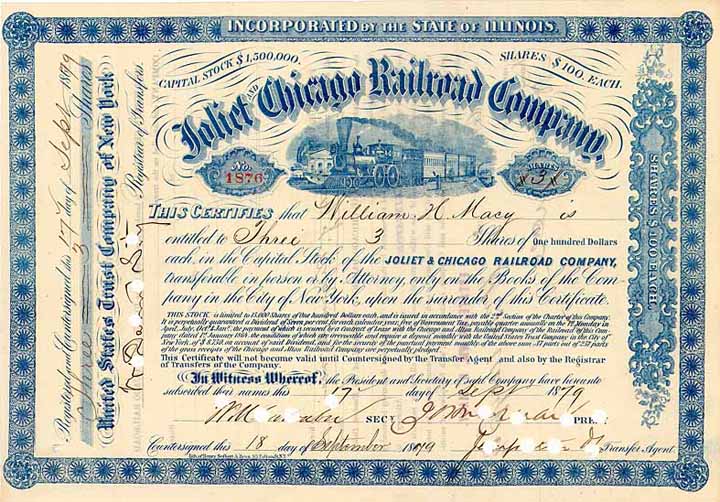 INCORPORATED BY THE STATE OF ILLINOIS.
CAPITAL STOCK $1,500,000.
SHARES $100. EACH.
Joliet AND Chicago Railroad Company.
No. 1876
SHARES 3
THIS CERTIFIES that William H. Macy is
entitled to Three 3 Shares of One hundred Dollars
each, in the Capital Stock of the JOLIET & CHICAGO RAILROAD COMPANY,
transferable in person or by Attorney, only on the Books of the Com-
pany in the City of New York, upon the surrender of this Certificate.
THIS STOCK is limited to 15,000 Shares of One hundred Dollars each, and is issued in accordance with the 2nd Section of the Charter of this Company.
It is perpetually guaranteed a Dividend of Seven per cent for each calendar year, free of Government Tax, payable quarter annually on the 1st Monday in
April, July, Oct. & Jany. the payment of which is secured by a Contract of Lease with the Chicago and Alton Railroad Company of the Railroad of this Com-
pany dated 1st January 1864, the conditions of which are irrevocable and require a deposit monthly with the United States Trust Company in the City of
New York, of $ 8,750 on account of said Dividend, and for the security of the punctual payment monthly of the above sum
of the gross receipts of the Chicago and Alton Railroad Company are perpetually pledged.
This Certificate will not become valid until Countersigned by the Transfer Agent and also by the Registrar
of Transfers of the Company.
In Witness Whereof, the President and Secretary of said Company have hereunto
subscribed their names this 17 day of Sept 1879
SECY.
PREST.
Countersigned this 18 day of September 1879
Transfer Agent.
Registered and Countersigned this 17 day of Sept 1879
3 Shares
United States Trust Company of New York
Registrar of Transfers.
SHARES $100 EACH